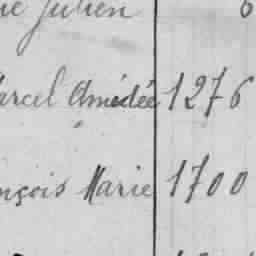 Julien
arcel Amédée 1276
nçois Marie 1700